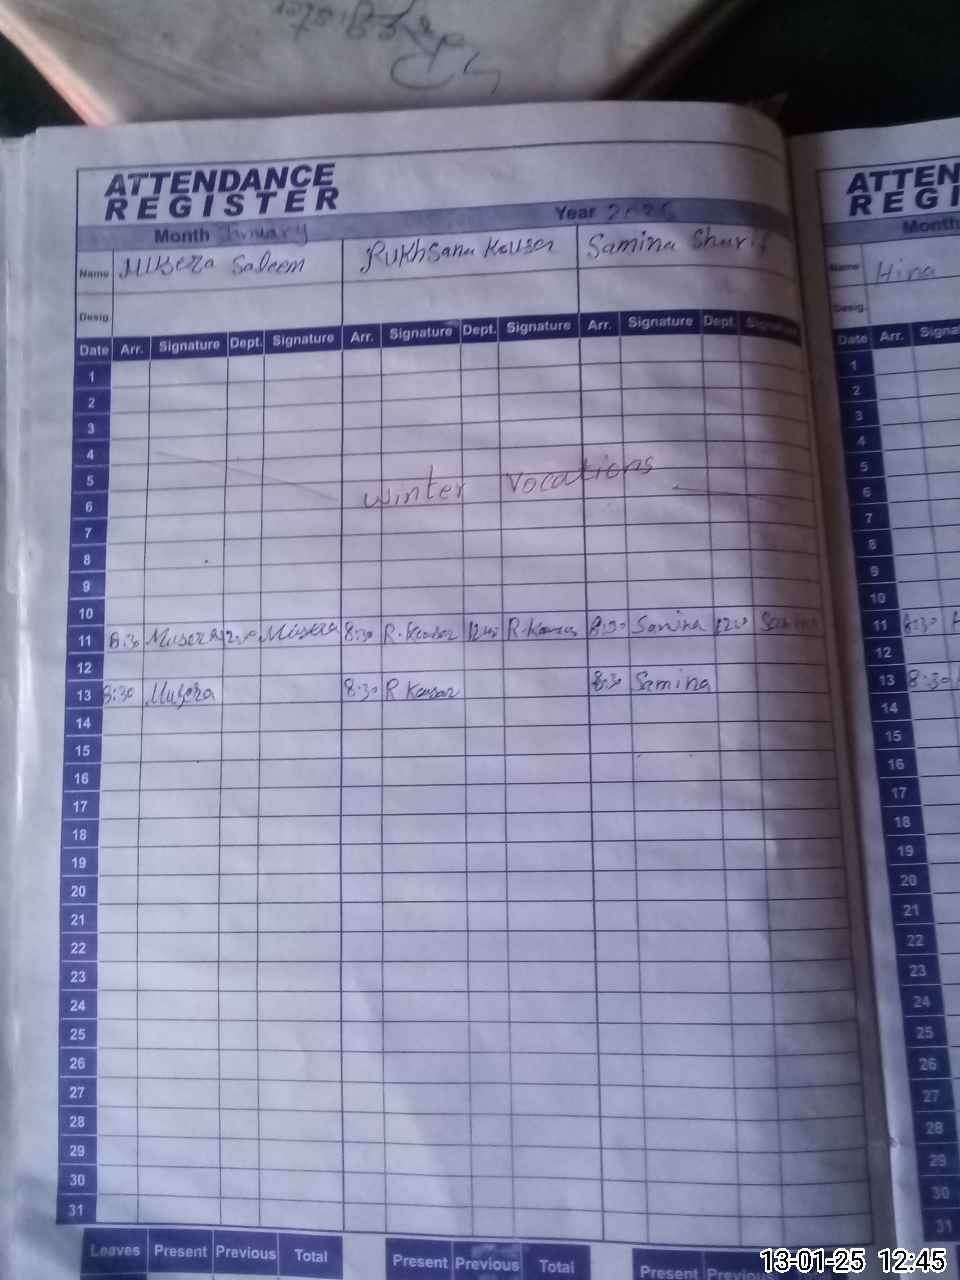 ATTENDANCE
REGISTER
Month January Year
Name Musera Saleem Rukhsana Kouser Samina Sharif
Desig.
Date Arr. Signature Dept. Signature Arr. Signature Dept. Signature Arr. Signature Dept. Signature
1
2
3
4
5
6 winter vocations
7
8
9
10
11 8:30 Musera Musera 8:30 R. Kouser R. Kouser 8:30 Samina 1200 Samina
12
13 8:30 Musera 8:30 R Kousar 8:30 Samina
14
15
16
17
18
19
20
21
22
23
24
25
26
27
28
29
30
31
Leaves Present Previous Total Present Previous Total Present
ATTEN
REG
Month
Name Hina
Desig.
Date Arr. Signa
1
2
3
4
5
6
7
8
9
10
11 8:30
12
13 8:30
14
15
16
17
18
19
20
21
22
23
24
25
26
27
28
29
30
31
13-01-25 12:45